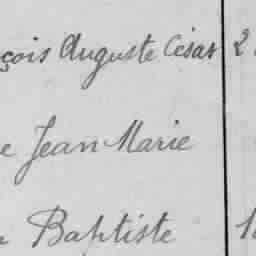 çois Auguste César 2
e Jean Marie
Baptiste 1